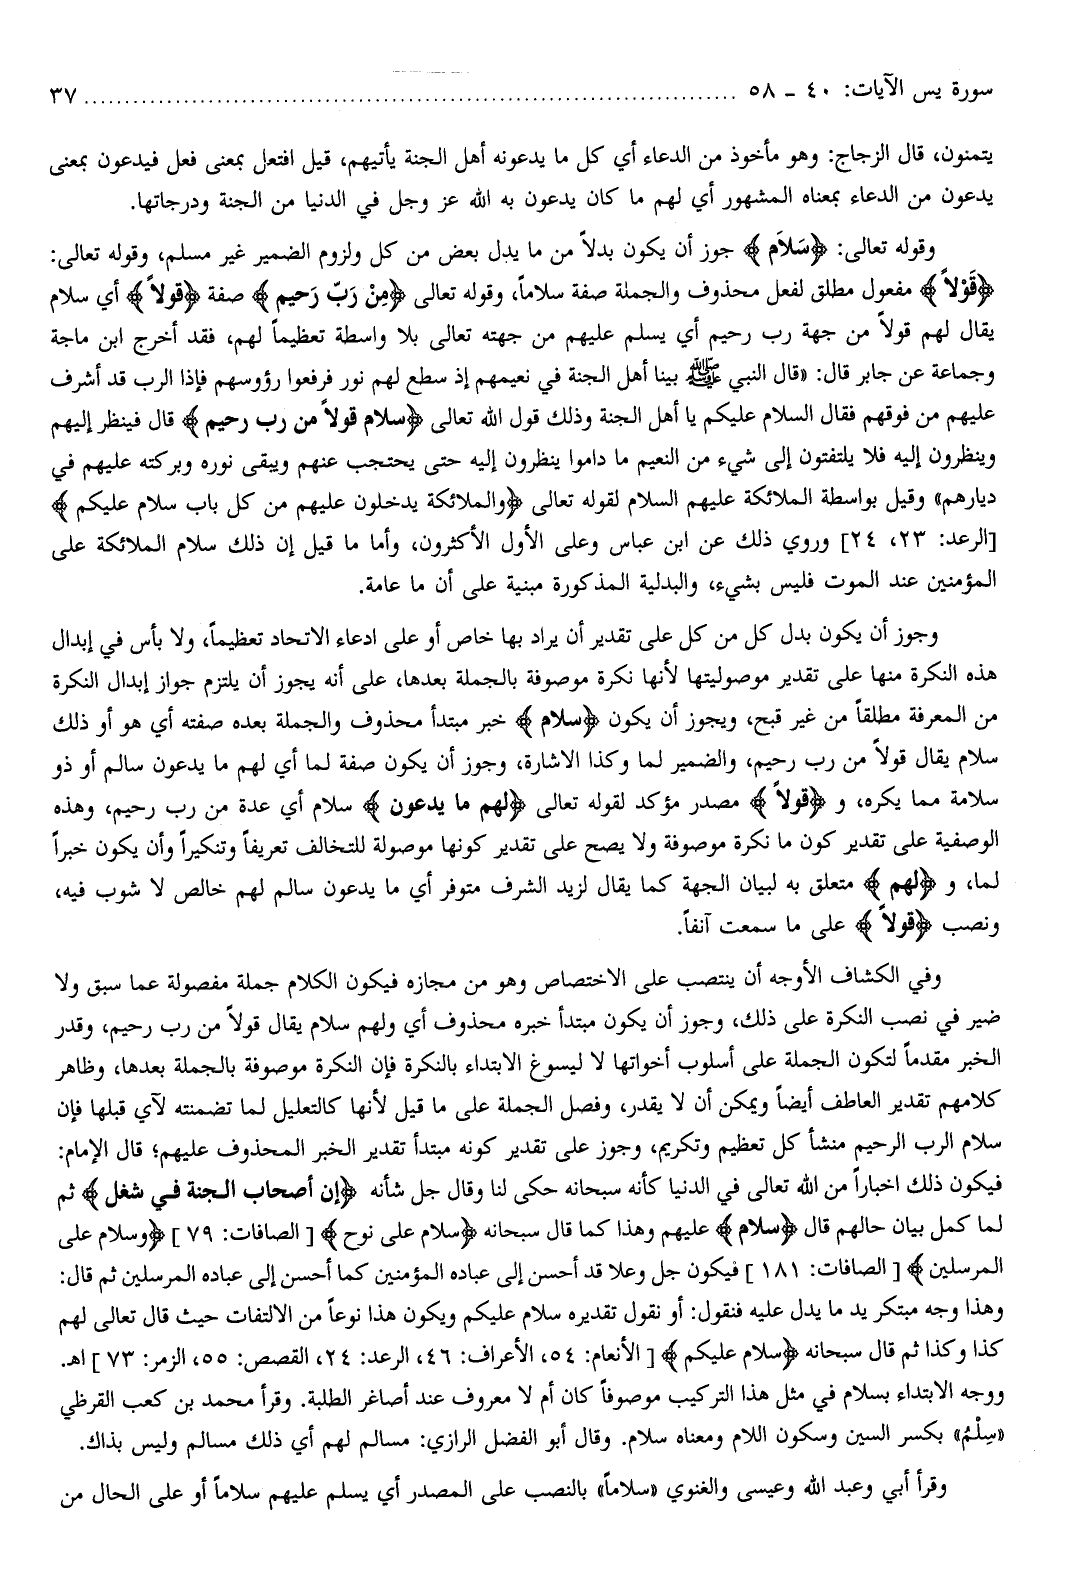 سورة يس الآيات: ٤٠ ـ ٥٨ ........................................................................ ٣٧
يتمنون، قال الزجاج: وهو مأخوذ من الدعاء أي كل ما يدعونه أهل الجنة يأتيهم، قيل افتعل بمعنى فعل فيدعون بمعنى
يدعون من الدعاء بمعناه المشهور أي لهم ما كان يدعون به الله عز وجل في الدنيا من الجنة ودرجاتها.
وقوله تعالى: ﴿سَلاَم﴾ جوز أن يكون بدلاً من ما يدل بعض من كل ولزوم الضمير غير مسلم، وقوله تعالى:
﴿قَوْلاً﴾ مفعول مطلق لفعل محذوف والجملة صفة سلاماً، وقوله تعالى ﴿مِنْ رَبّ رَحيم﴾ صفة ﴿قولاً﴾ أي سلام
يقال لهم قولاً من جهة رب رحيم أي يسلم عليهم من جهته تعالى بلا واسطة تعظيماً لهم، فقد أخرج ابن ماجة
وجماعة عن جابر قال: «قال النبي ﷺ بينا أهل الجنة في نعيمهم إذ سطع لهم نور فرفعوا رؤوسهم فإذا الرب قد أشرف
عليهم من فوقهم فقال السلام عليكم يا أهل الجنة وذلك قول الله تعالى ﴿سلام قولاً من رب رحيم﴾ قال فينظر إليهم
وينظرون إليه فلا يلتفتون إلى شيء من النعيم ما داموا ينظرون إليه حتى يحتجب عنهم ويبقى نوره وبركته عليهم في
ديارهم» وقيل بواسطة الملائكة عليهم السلام لقوله تعالى ﴿والملائكة يدخلون عليهم من كل باب سلام عليكم﴾
[الرعد: ٢٣، ٢٤] وروي ذلك عن ابن عباس وعلى الأول الأكثرون، وأما ما قيل إن ذلك سلام الملائكة على
المؤمنين عند الموت فليس بشيء، والبدلية المذكورة مبنية على أن ما عامة.
وجوز أن يكون بدل كل من كل على تقدير أن يراد بها خاص أو على ادعاء الاتحاد تعظيماً، ولا بأس في إبدال
هذه النكرة منها على تقدير موصوليتها لأنها نكرة موصوفة بالجملة بعدها، على أنه يجوز أن يلتزم جواز إبدال النكرة
من المعرفة مطلقاً من غير قبح، ويجوز أن يكون ﴿سلام﴾ خبر مبتدأ محذوف والجملة بعده صفته أي هو أو ذلك
سلام يقال قولاً من رب رحيم، والضمير لما وكذا الاشارة، وجوز أن يكون صفة لما أي لهم ما يدعون سالم أو ذو
سلامة مما يكره، و ﴿قولاً﴾ مصدر مؤكد لقوله تعالى ﴿لهم ما يدعون﴾ سلام أي عدة من رب رحيم، وهذه
الوصفية على تقدير كون ما نكرة موصوفة ولا يصح على تقدير كونها موصولة للتخالف تعريفاً وتنكيراً وأن يكون خبراً
لما، و ﴿لهم﴾ متعلق به لبيان الجهة كما يقال لزيد الشرف متوفر أي ما يدعون سالم لهم خالص لا شوب فيه،
ونصب ﴿قولاً﴾ على ما سمعت آنفاً.
وفي الكشاف الأوجه أن ينتصب على الاختصاص وهو من مجازه فيكون الكلام جملة مفصولة عما سبق ولا
ضير في نصب النكرة على ذلك، وجوز أن يكون مبتدأ خبره محذوف أي ولهم سلام يقال قولاً من رب رحيم، وقدر
الخبر مقدماً لتكون الجملة على أسلوب أخواتها لا ليسوغ الابتداء بالنكرة فإن النكرة موصوفة بالجملة بعدها، وظاهر
كلامهم تقدير العاطف أيضاً ويمكن أن لا يقدر، وفصل الجملة على ما قيل لأنها كالتعليل لما تضمنته لآي قبلها فإن
سلام الرب الرحيم منشأ كل تعظيم وتكريم، وجوز على تقدير كونه مبتدأ تقدير الخبر المحذوف عليهم؛ قال الإمام:
فيكون ذلك اخباراً من الله تعالى في الدنيا كأنه سبحانه حكى لنا وقال جل شأنه ﴿إن أصحاب الجنة في شغل﴾ ثم
لما كمل بيان حالهم قال ﴿سلام﴾ عليهم وهذا كما قال سبحانه ﴿سلام على نوح﴾ [الصافات: ٧٩] ﴿وسلام على
المرسلين﴾ [الصافات: ١٨١] فيكون جل وعلا قد أحسن إلى عباده المؤمنين كما أحسن إلى عباده المرسلين ثم قال:
وهذا وجه مبتكر يد ما يدل عليه فنقول: أو نقول تقديره سلام عليكم ويكون هذا نوعاً من الالتفات حيث قال تعالى لهم
كذا وكذا ثم قال سبحانه ﴿سلام عليكم﴾ [الأنعام: ٥٤، الأعراف: ٤٦، الرعد: ٢٤، القصص: ٥٥، الزمر: ٧٣] اهـ.
ووجه الابتداء بسلام في مثل هذا التركيب موصوفاً كان أم لا معروف عند أصاغر الطلبة. وقرأ محمد بن كعب القرظي
«سِلْمُ» بكسر السين وسكون اللام ومعناه سلام. وقال أبو الفضل الرازي: مسالم لهم أي ذلك مسالم وليس بذاك.
وقرأ أبي وعبد الله وعيسى والغنوي «سلاماً» بالنصب على المصدر أي يسلم عليهم سلاماً أو على الحال من